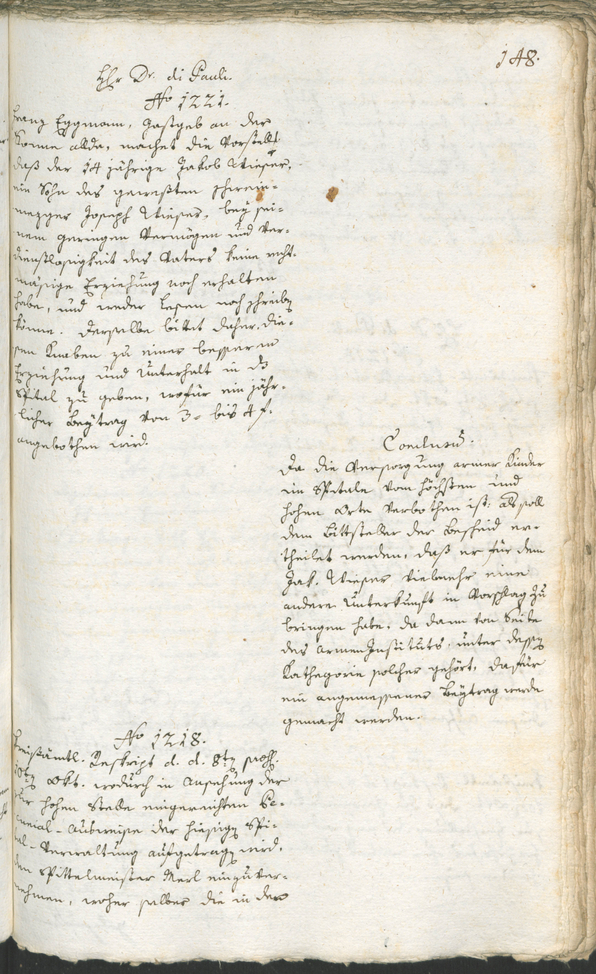 148.
Hhr Dr. di Pauli.
No 1221.
Franz Eggmann, Gastgeb an der
Sonne allda, machet die Vorstell
daß der 14 jährige Jakob Wieser,
ein Sohn des gewesten Schwein-
mezger Joseph Wieser, bey sei-
nem geringen Vermögen und Ver-
dienstlosigkeit des Vaters keine recht-
mäsige Erziehung noch erhalten
habe, und weder lesen noch schreiben
könne. Derselbe bittet daher, die-
sen Knaben zu einer besseren
Erziehung und Unterhalt in das
Spital zu geben, wofür ein jähr-
licher Beytrag von 3- bis 4 f.
angebothen wird.
Conclusum:
Da die Versorgung armer Kinder
im Spitale vom höchsten und
hohen Orte verbothen ist: als soll
dem Bittsteller der Bescheid er-
theilet werden, daß er für den
Jak. Wieser vielmehr eine
andere Unterkunft in Vorschlag zu
bringen habe, da dann von Seite
des Armen Instituts, unter dessen
Kathegorie solcher gehört, dafür
ein angemessener Beytrag werde
gemacht werden.
No 1218.
Kreisämtl. Reskript d. d. 8ten prs.
10ten Okt. wodurch in Ansehung der
hohen Stelle eingereichten Ge-
neral-Ausweise der hiesigen Spi-
tal-Verwaltung aufgetragen wird,
den Spittelmeister Merl einzuver-
nehmen, woher selber die in den